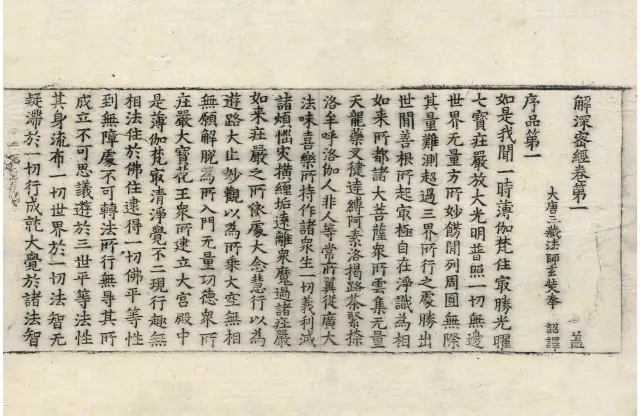 解深密經卷第一 盖
大唐三藏法師玄奘奉 詔譯
序品第一
如是我聞一時薄伽梵住㝡勝光曜
七寶莊嚴放大光明普照一切無邊
世界无量方所妙飾間列周圓無際
其量難測超過三界所行之處勝出
世間善根所起㝡極自在淨識為相
如來所都諸大菩薩衆所雲集无量
天龍藥叉健達縛阿素洛揭路荼緊捺
洛牟呼洛伽人非人等常所翼從廣大
法味喜樂所持作諸衆生一切義利滅
諸煩惱灾横纏垢遠離衆魔過諸莊嚴
如来莊嚴之所依處大念慧行以為
遊路大止妙觀以為所乘大空無相
無願解脫為所入門无量功德衆所
莊嚴大寶花王衆所建立大宮殿中
是薄伽梵㝡清淨覺不二現行趣無
相法住於佛住逮得一切佛平等性
到無障處不可轉法所行無导其所
成立不可思議遊於三世平等法性
其身流布一切世界於一切法智无
疑滯於一切行成就大覺於諸法智